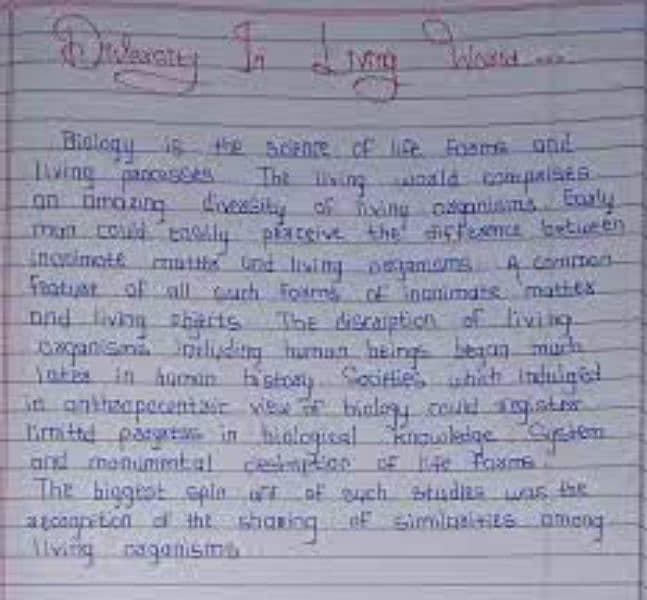 Diversity In Living World ...
Biology is the science of life forms and
living processes The living world comprises
an amazing diversity of living organisms. Early
man could easily perceive the difference between
inanimate matter and living organisms. A common
feature of all such forms of inanimate matter
and living objects The discription of living
organisms including human beings began much
later in human history. Societies which indulged
in anthropocentric view of biology could register
limited progress in biological knowledge System
and monumental description of life forms.
The biggest spin off of such studies was the
recognition of the sharing of similarities among
living organisms